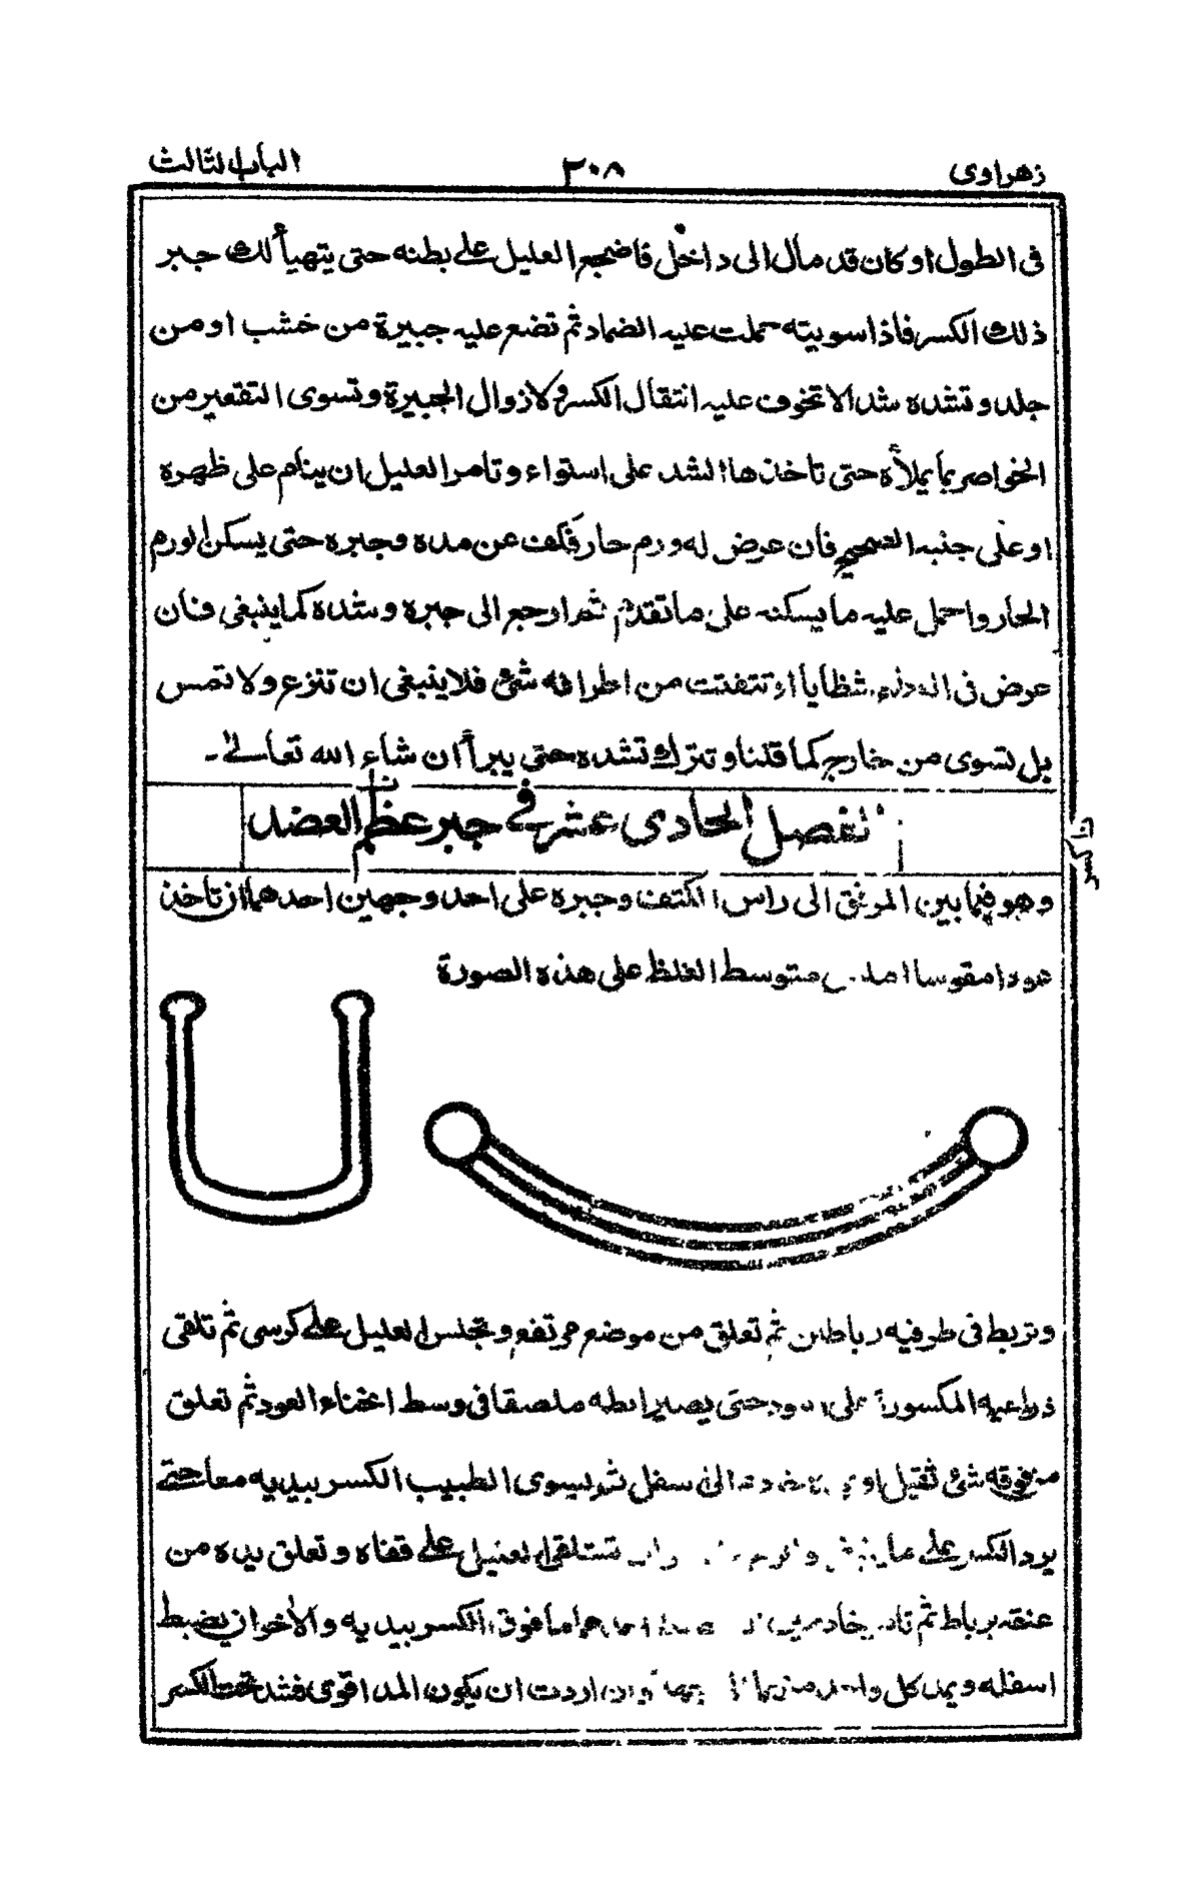 زهراوى ٢٠٨ الباب الثالث
فى الطول او كان قد مال الى داخل فاضجع العليل على بطنه حتى يتهيأ لك جبر
ذلك الكسر فاذا سويته حملت عليه الضماد ثم تضع عليه جبيرة من خشب او من
جلد و تشده شدا لا تخوف عليه انتقال الكسر و لا زوال الجبيرة و تسوى التقعير من
الخواصر بما يملأه حتى تاخذ ها الشد على استواء و تامر العليل ان ينام على ظهره
او على جنبه الصحيح فان عرض له ورم حار فكف عن مده و جبره حتى يسكن الورم
الحار و احمل عليه ما يسكنه على ما تقدم ثم ارجع الى جبره و شده كما ينبغى فان
عرض فى العظم شظايا او تتفتت من اطرافه شئ فلا ينبغى ان تنزع و لا تمس
بل تسوى من خارج كما قلنا و تترك تشده حتى يبرأ ان شاء الله تعالى-
الفصل الحادى عشر فى جبر عظم العضد
كسر نا
و هو فيما بين المرفق الى راس الكتف و جبره على احد وجهين احدهما ان تاخذ
عودا مقوسا املس متوسط الغلظ على هذه الصورة
و تربط فى طرفيه رباطين ثم تعلق من موضع مرتفع و تجلس العليل على كرسى ثم تلقى
ذراعيه المكسورة على العود حتى يصير ابطه ملصقا فى وسط اغناء العود ثم تعلق
من فوقه شئ ثقيل او الى سفل ثم يسوى الطبيب الكسر بيديه معا حتى
يرد الكسر على ما ينبغى و تستلقى العليل على قفاه و تعلق يده من
عنقه برباط ثم تامر خادمين ما فوق الكسر بيديه و الاخر ان يضبط
اسفله و يمد كل واحد منهما وان اردت ان يكون المد اقوى فشد تحت الكسر